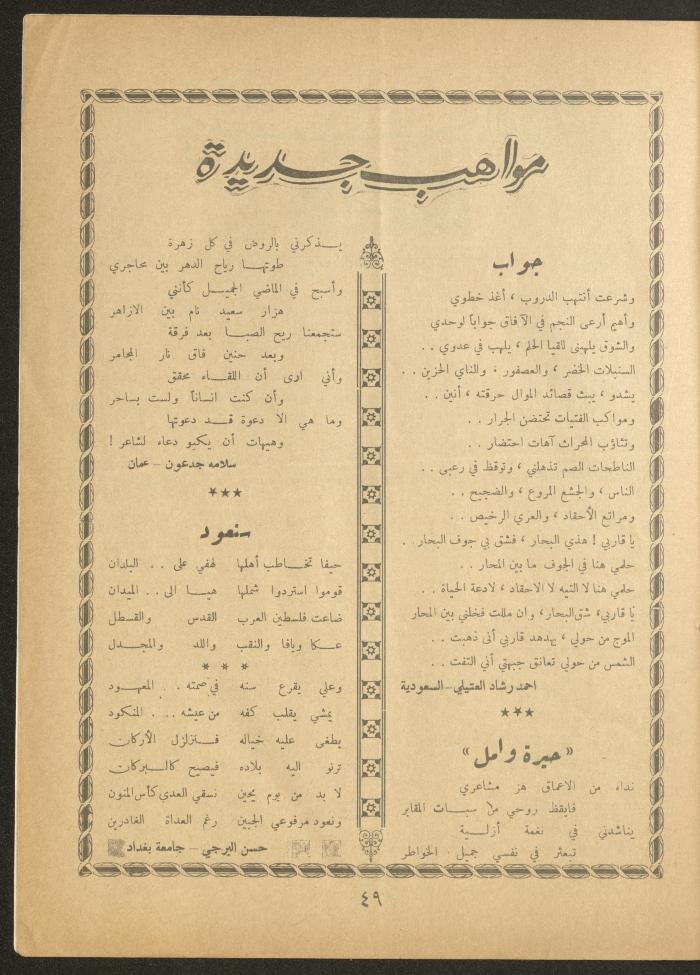 مواهب جديدة
جواب
وشرعت أنتهب الدروب ، أغذ خطوي
وأهيم أرعى النجم في الآفاق جواباً لوحدي
والشوق يلهبنى للقيا الحلم ، يلهب في عدوي . .
السنبلات الخضر ، والعصفور ، والناي الحزين . .
يشدو ، يبث قصائد الموال حرقته ، أنين . .
ومواكب الفتيات تحتضن الجرار . .
وتثاؤب المحراث آهات احتضار . .
الناطحات الصم تذهلني ، وتوقظ في رعبى . .
الناس ، والجشع المروع ، والضجيج . .
ومراتع الأحقاد ، والعري الرخيص . .
يا قاربي ! هذي البحار ، فشق بي جوف البحار .
حلمي هنا في الجوف ما بين المحار . .
حلمي هنا لا التيه لا الاحقاد ، لادعة الحياة . .
يا قاربي ، شق البحار ، وان مللت فخلني بين المحار
الموج من حولي ، يهدهد قاربي أنى ذهبت . .
الشمس من حولي تعانق جبهتي أني التفت . .
احمد رشاد العتيلي – السعودية
★★★
« حيرة وامل »
نداء من الاعماق هز مشاعري
فايقظ روحي من سبات المقابر
يناشدني في نغمة أزلية
تبعثر في نفسي جميل الخواطر
يذكرني بالروض في كل زهرة
طوتها رياح الدهر بين محاجري
وأسبح في الماضي الجميل كأنني
هزار سعيد نام بين الازاهر
ستجمعنا ريح الصبا بعد فرقة
وبعد حنين فاق نار المجامر
وأني ارى أن اللقاء محقق
وأن كنت انساناً ولست بساحر
وما هي الا دعوة قد دعوتها
وهيهات أن يكبو دعاء لشاعر !
سلامه جدعون – عمان
★★★
سنعود
حيفا تخاطب أهلها لهفي على . . البلدان
قوموا استردوا شملها هبا الى . . الميدان
ضاعت فلسطين العرب القدس والقسطل
عكا ويافا والنقب واللد والمجدل
★ ★ ★
وعلي يقرع سنه في صمته . . المعهود
يمشي يقلب كفه من عيشه . . . المنكود
يطغى عليه خياله فتزلزل الأركان
ترنو اليه بلاده فيصيح كالبركان
لا بد من يوم يحين نسقي العدى كأس المنون
ونعود مرفوعي الجبين رغم العداة الغادرين
حسن البرجي – جامعة بغداد
٤٩